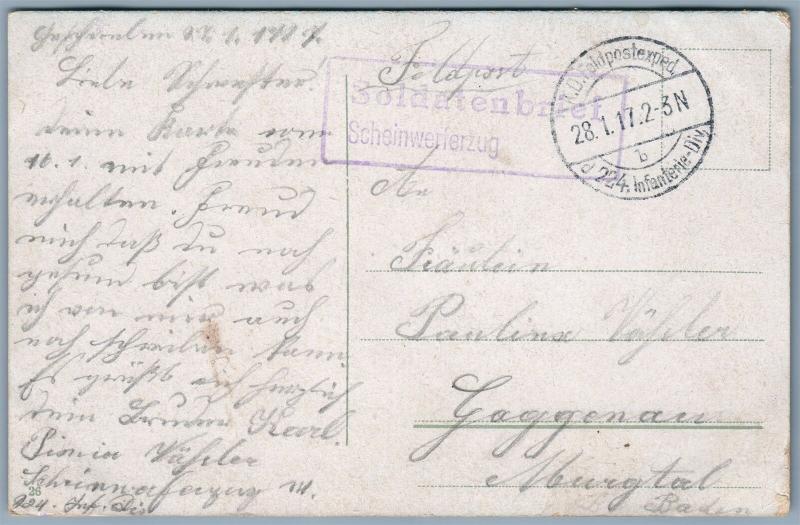 Geschrieben 27.1.1917.
Liebe Schwester!
deine Karte vom
16.1. mit Freuden
erhalten. Freud
mich daß du noch
gesund bist was
ich von mir auch
noch schreiben kann
Es grüßt euch herzlich
dein Bruder Karl.
Pionier Vähsler
Scheinwerferzug
224. Inf. Div
26
Feldpost
Soldatenbrief
Scheinwerferzug
K.D. Feldpostexped.
28.1.17.2-3N
b
d 224. Infanterie-Div.
An
Fräulein
Pauline
Gaggenau
Murgtal
Baden